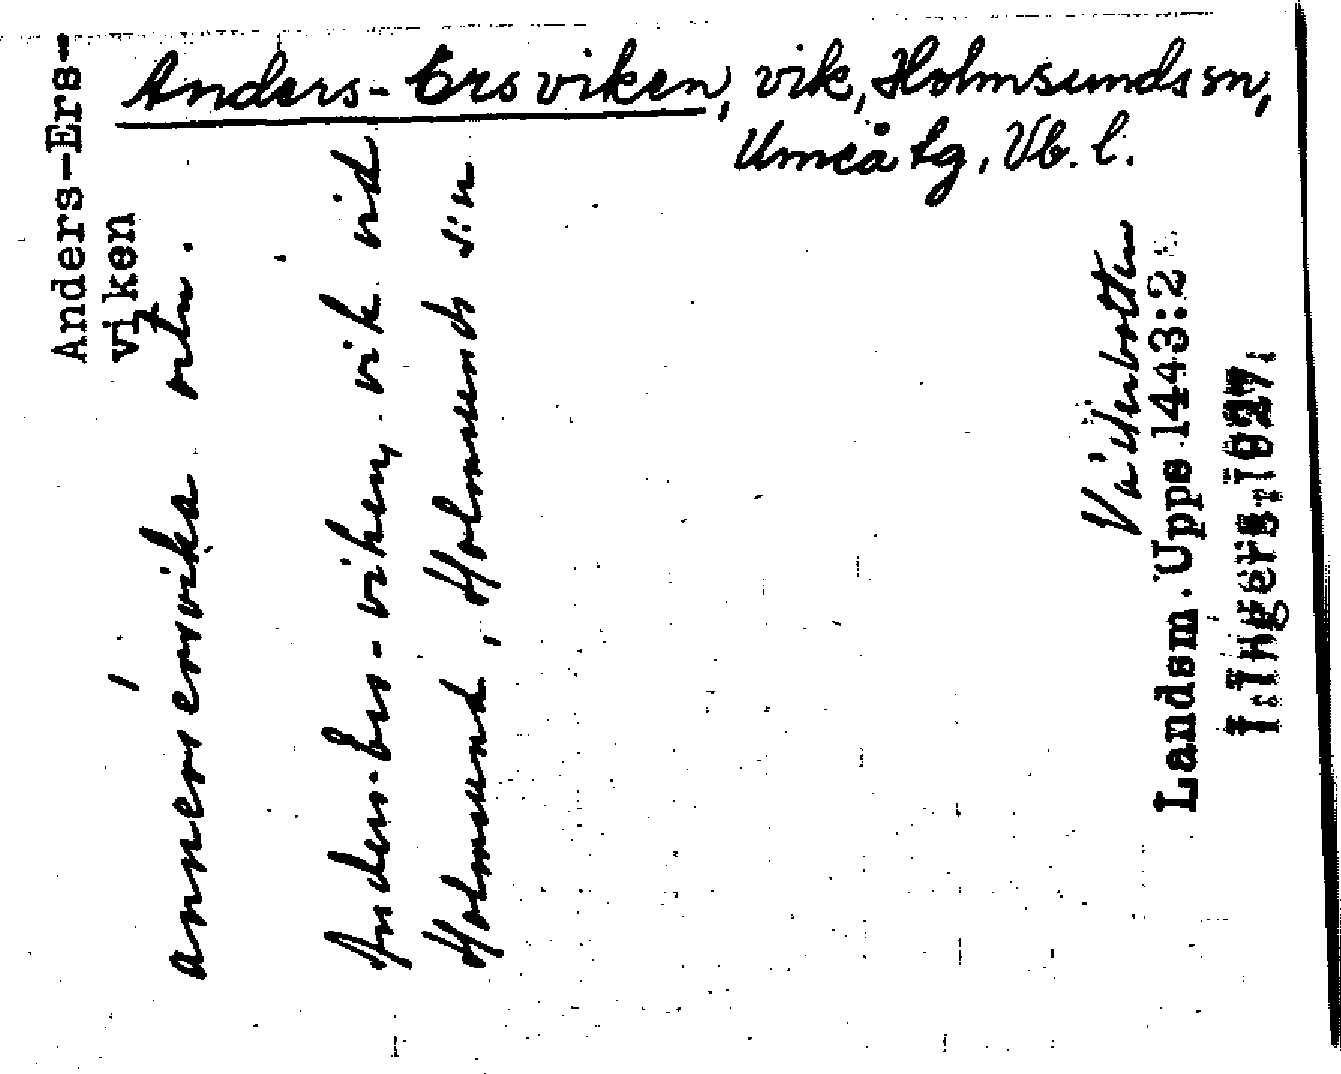 Anders-Ers viken, vik, Holmsunds sn,
Umeå tg, Vb. l.
Anders-Ers-
viken
annersérsvika
Anders-Ers-viken, vik vid
Holmsund, Holmsunds s:n
Västerbotten
Landsm. Upps 1443:2
1927